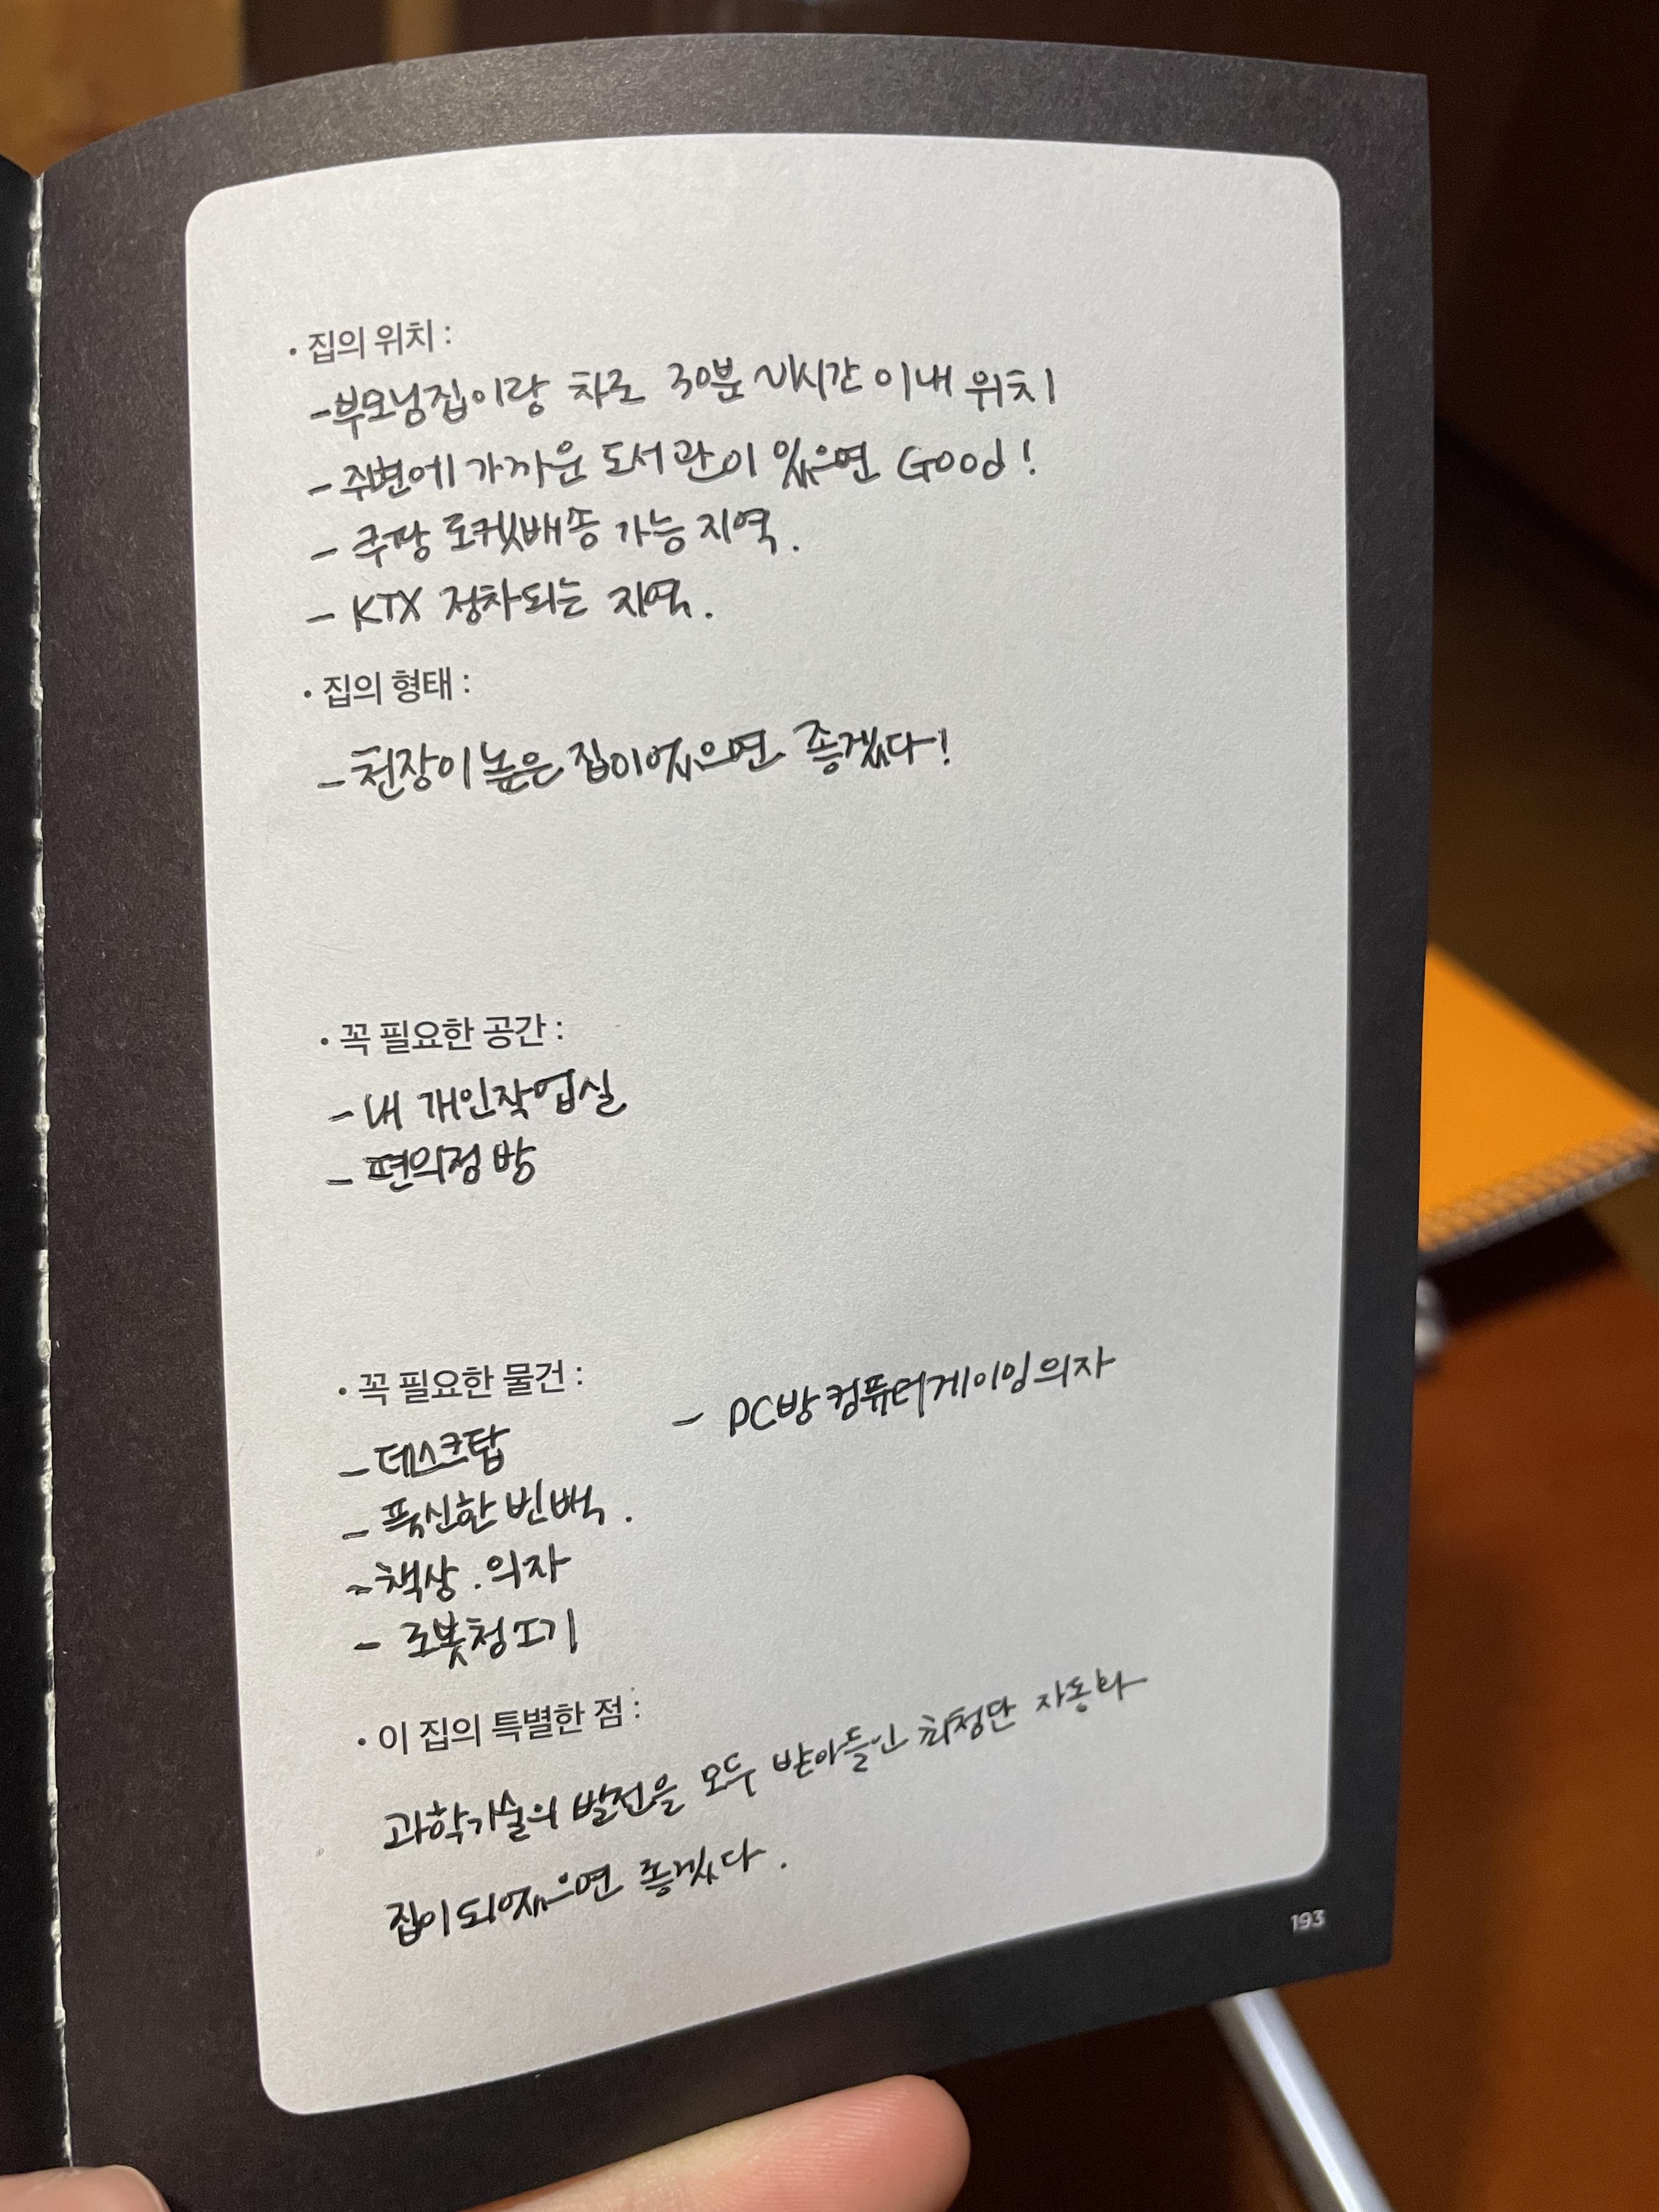 • 집의 위치 :
- 부모님집이랑 차로 30분~1시간 이내 위치
- 주변에 가까운 도서관이 있으면 Good!
- 쿠팡 로켓배송 가능 지역.
- KTX 정차되는 지역.
• 집의 형태 :
- 천장이 높은 집이었으면 좋겠다!
• 꼭 필요한 공간 :
- 내 개인작업실
- 편의점 방
• 꼭 필요한 물건 :
- PC방 컴퓨터게이밍의자
- 데스크탑
- 푹신한 빈백.
- 책상. 의자
- 로봇청소기
• 이 집의 특별한 점 :
과학기술의 발전을 모두 받아들인 최첨단 자동화
집이 되었으면 좋겠다.
193